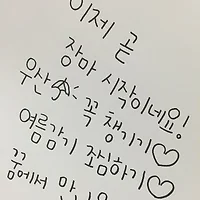 이제 곧
장마 시작이네요!
우산☂ 꼭 챙기기♡
여름감기 조심하기♡
꿈에서